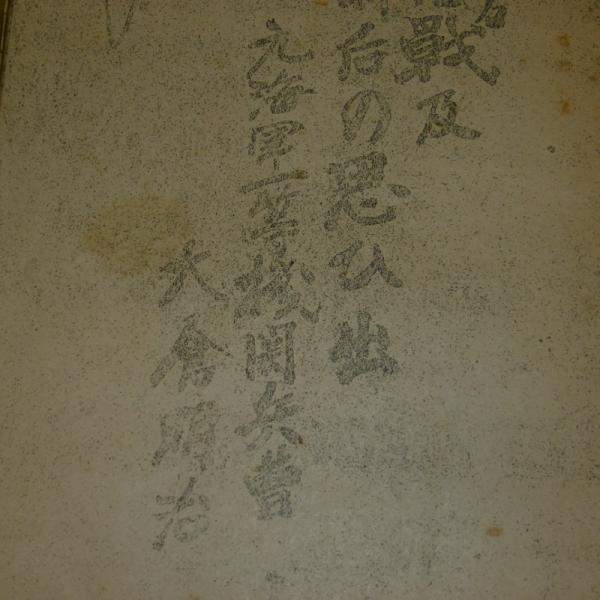 戰及
后の思ひ出
元海軍一等機関兵曹
大倉明治